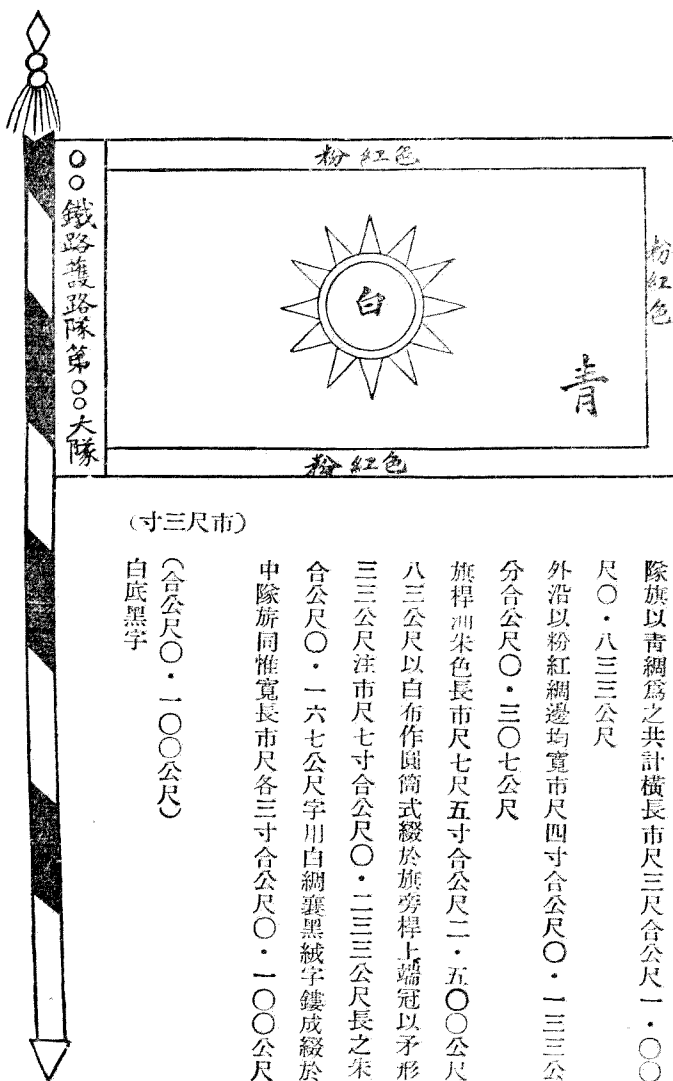 粉紅色
粉紅色
白
青
粉紅色
○○鐵路護路隊第○○大隊
隊旗以青綢爲之共計橫長市尺三尺合公尺一・○○
尺○・八三三公尺
外沿以粉紅綢邊均寬市尺四寸合公尺○・一三三公
分合公尺○・三○七公尺
旗桿油朱色長市尺七尺五寸合公尺二・五○○公尺
八三公尺以白布作圓筒式綴於旗旁桿上端冠以矛形
三三公尺注市尺七寸合公尺○・二三三公尺長之朱
合公尺○・一六七公尺字用白綢襄黑絨字鏤成綴於
中隊旂同惟寬長市尺各三寸合公尺○・一○○公尺
(市尺三寸)
(合公尺○・一○○公尺)
白底黑字